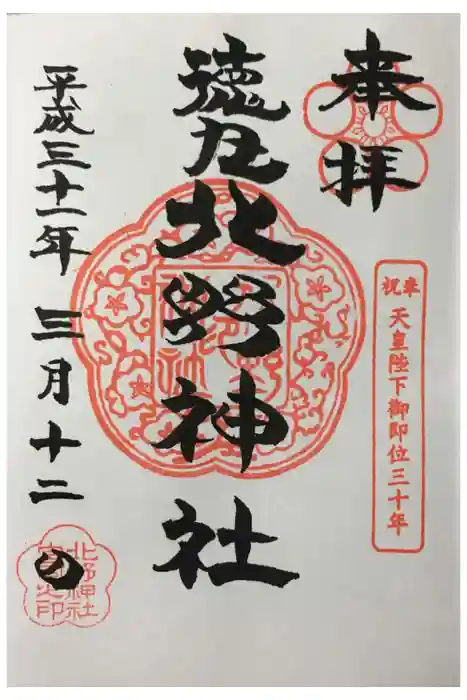 奉拝
奉祝 天皇陛下御即位三十年
徳丸北野神社
平成三十一年 三月十二日
北野神社